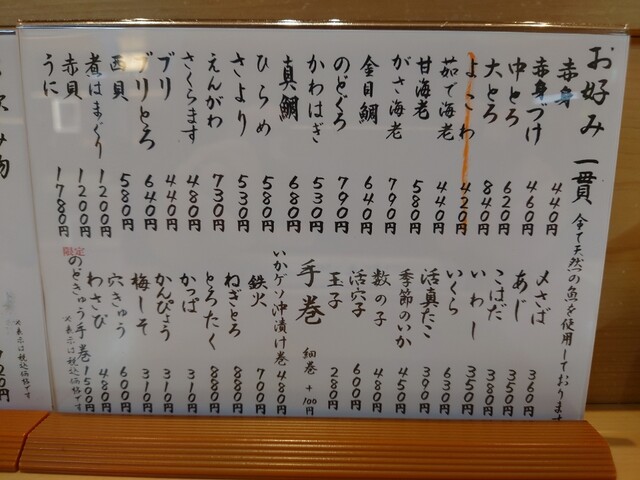 お好み 一貫 全て天然の魚を使用しております
赤身 440円
赤身づけ 460円
中とろ 620円
大とろ 840円
よこわ 420円
茹で海老 440円
甘海老 580円
がさ海老 790円
金目鯛 640円
のどぐろ 790円
かわはぎ 530円
真鯛 680円
ひらめ 580円
さより 530円
えんがわ 730円
さくらます 480円
ブリ 440円
ブリとろ 640円
西貝 580円
煮はまぐり 1200円
赤貝 1200円
うに 1780円
〆さば 360円
あじ 350円
こはだ 380円
いわし 350円
いくら 630円
活真たこ 390円
季節のいか 450円
数の子 480円
活穴子 600円
玉子 280円
手巻 細巻+100円
いかゲソ沖漬け巻 480円
鉄火 700円
ねぎとろ 880円
とろたく 880円
かっぱ 310円
かんぴょう 310円
梅しそ 310円
穴きゅう 600円
わさび 480円
限定 のどきゅう手巻 1500円
※表示は税込価格です
※表示は税込価格です